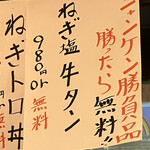 ジャンケン勝負品
勝ったら無料!!
ねぎ塩牛タン
980円or無料
ねぎトロ丼
無料